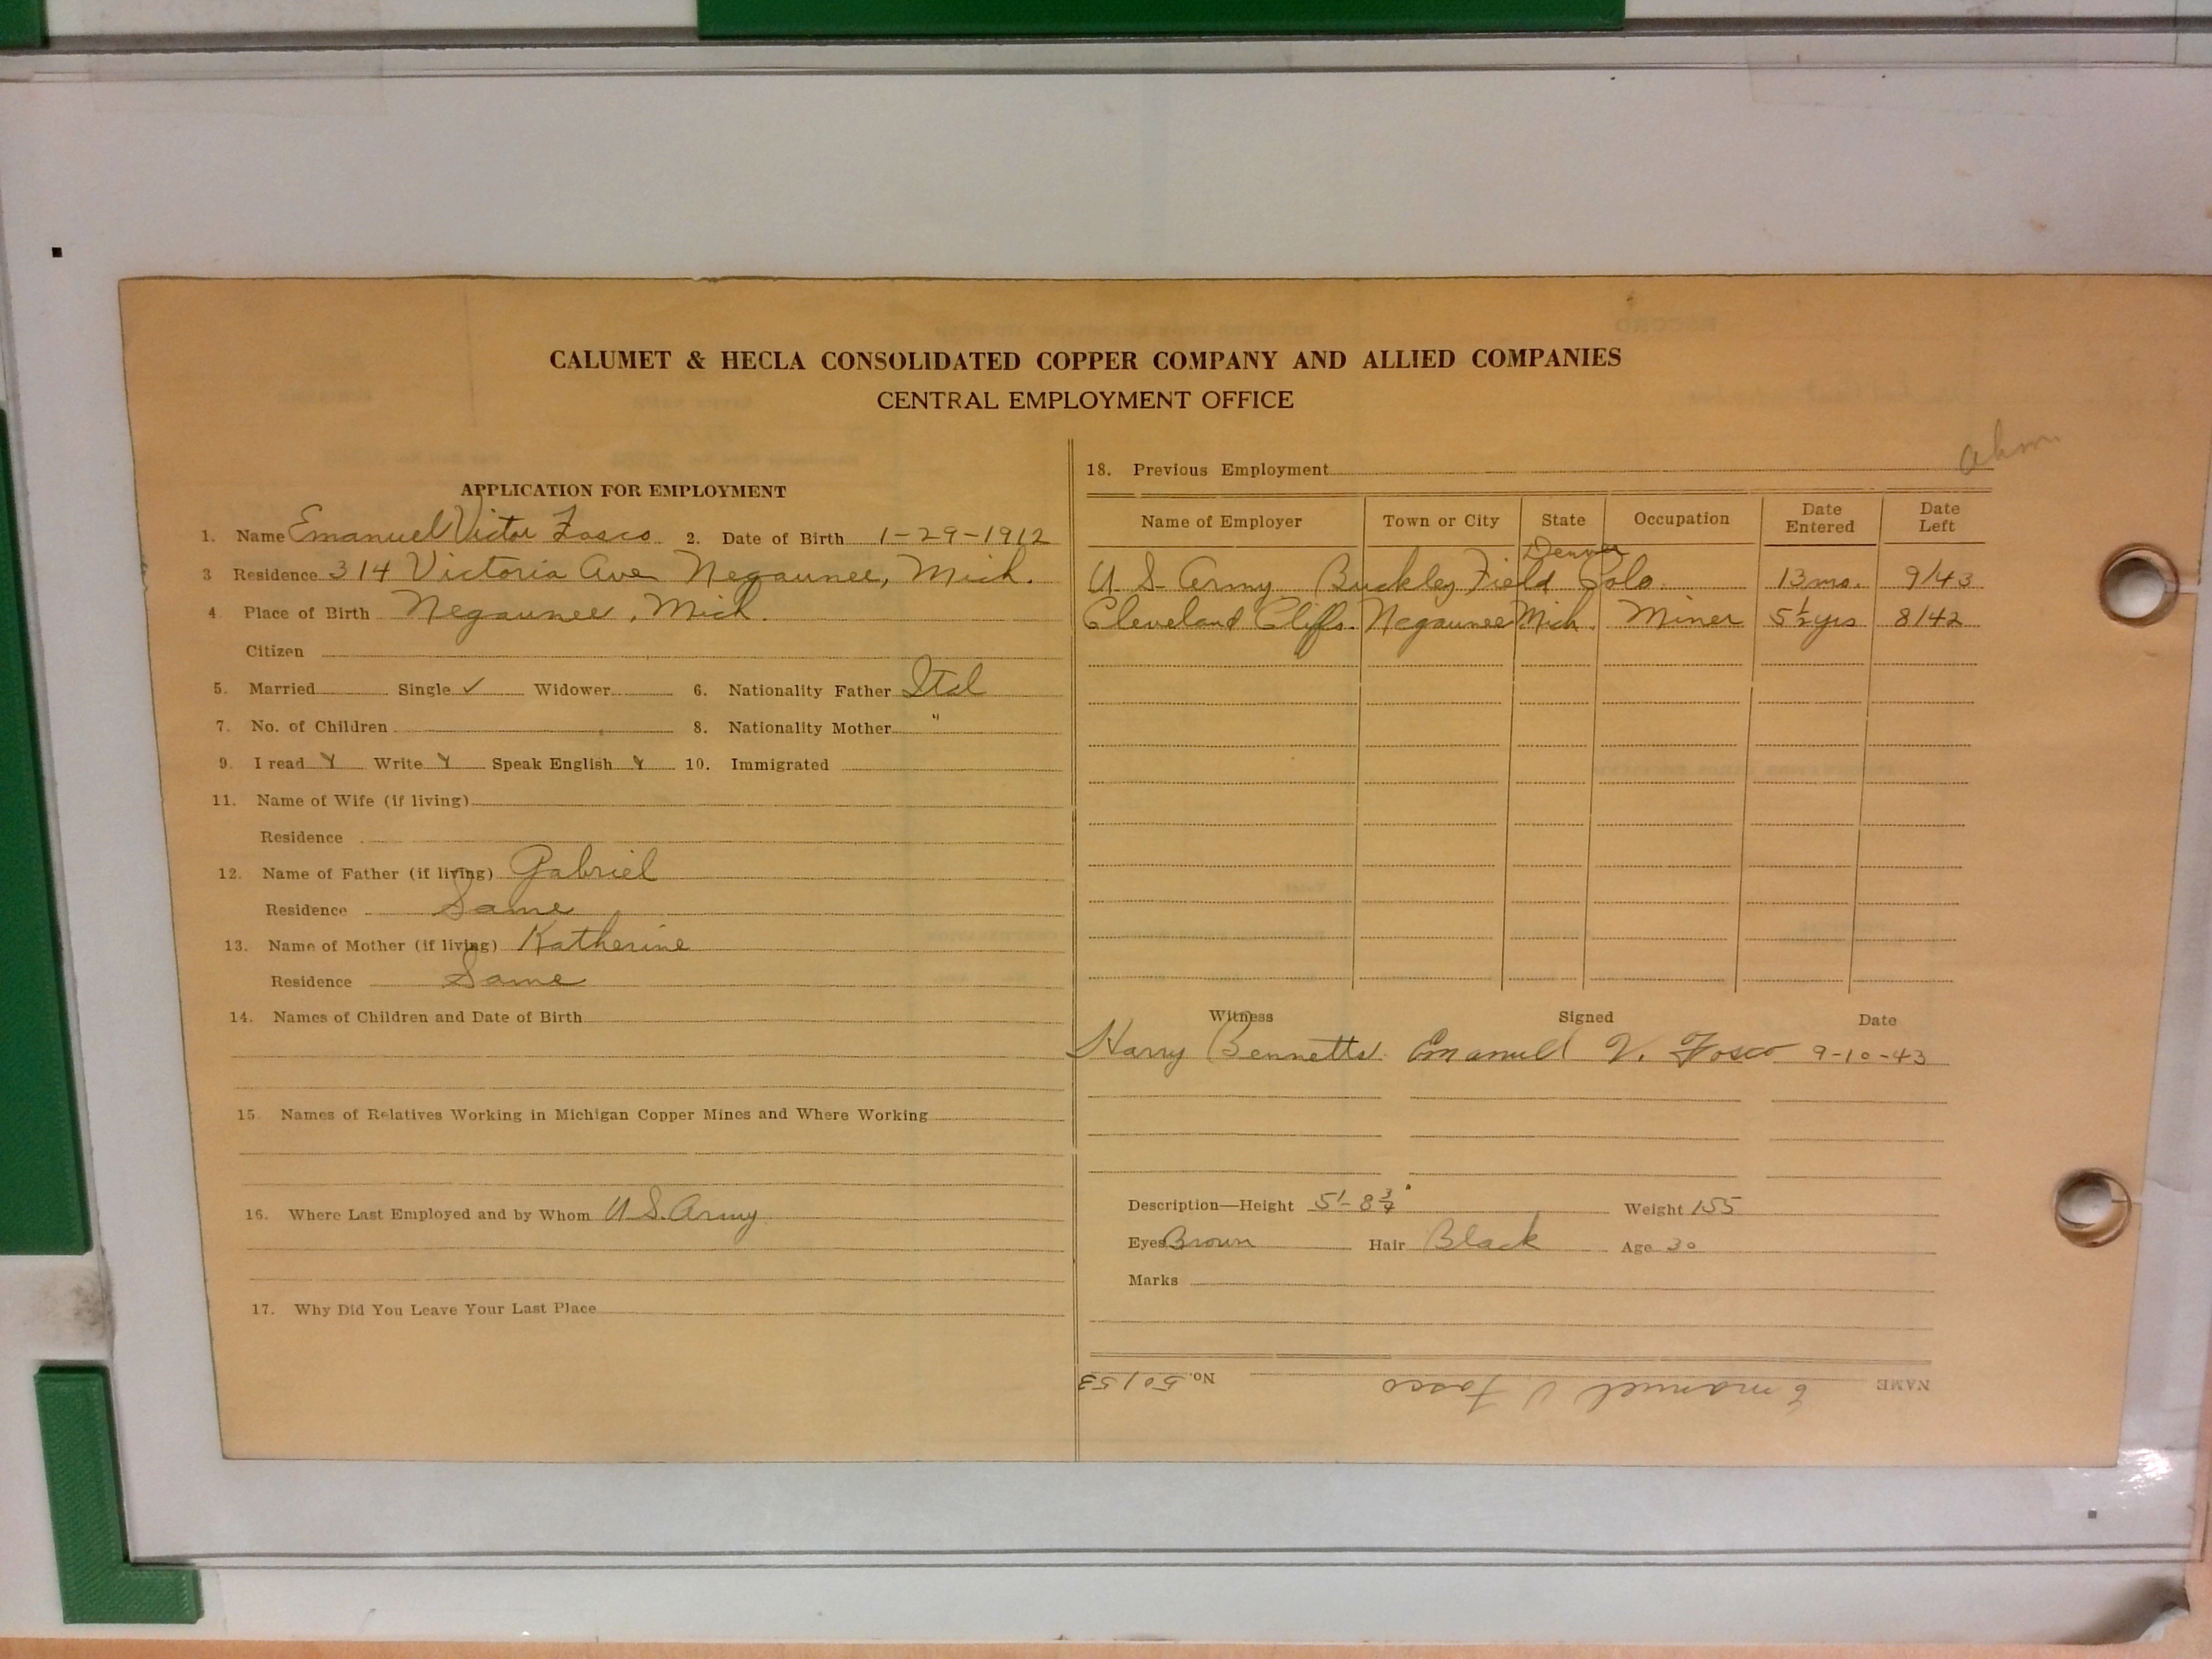 CALUMET & HECLA CONSOLIDATED COPPER COMPANY AND ALLIED COMPANIES
CENTRAL EMPLOYMENT OFFICE
APPLICATION FOR EMPLOYMENT
1. Name Emanuel Victor Fosco 2. Date of Birth 1-29-1912
3 Residence 314 Victoria Ave Negaunee, Mich.
4. Place of Birth Negaunee, Mich.
Citizen
5. Married Single ✓ Widower 6. Nationality Father Ital
7. No. of Children 8. Nationality Mother "
9. I read Y Write Y Speak English Y 10. Immigrated
11. Name of Wife (if living)
Residence
12. Name of Father (if living) Gabriel
Residence Same
13. Name of Mother (if living) Katherine
Residence Same
14. Names of Children and Date of Birth
15. Names of Relatives Working in Michigan Copper Mines and Where Working
16. Where Last Employed and by Whom U.S. Army
17. Why Did You Leave Your Last Place
18. Previous Employment
Name of Employer Town or City State Occupation Date Entered Date Left
Denver
U.S. Army Buckley Field Colo. 13 mo. 9/43
Cleveland Cliffs. Negaunee Mich. Miner 5½ yrs 8/42
Witness Signed Date
Harry Bennetts Emanuel V. Fosco 9-10-43
Description—Height 5'-8¾" Weight 155
Eyes Brown Hair Black Age 30
Marks
NAME Emanuel V Fosco No. 50153